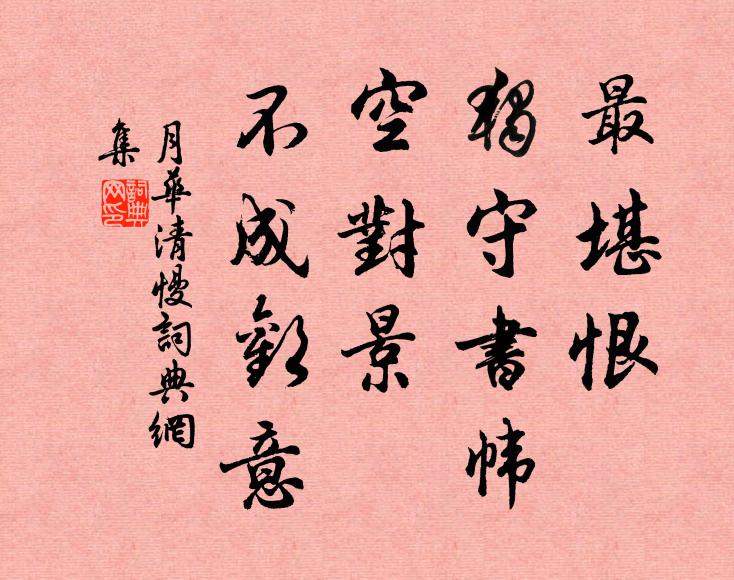 最堪恨
獨守書幃
空對景
不成歡意
月華清慢詞典網
集
詞典網印